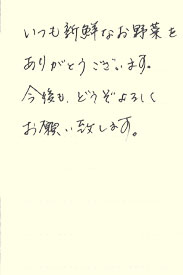 いつも新鮮なお野菜を
ありがとうございます。
今後も、どうぞよろしく
お願い致します。